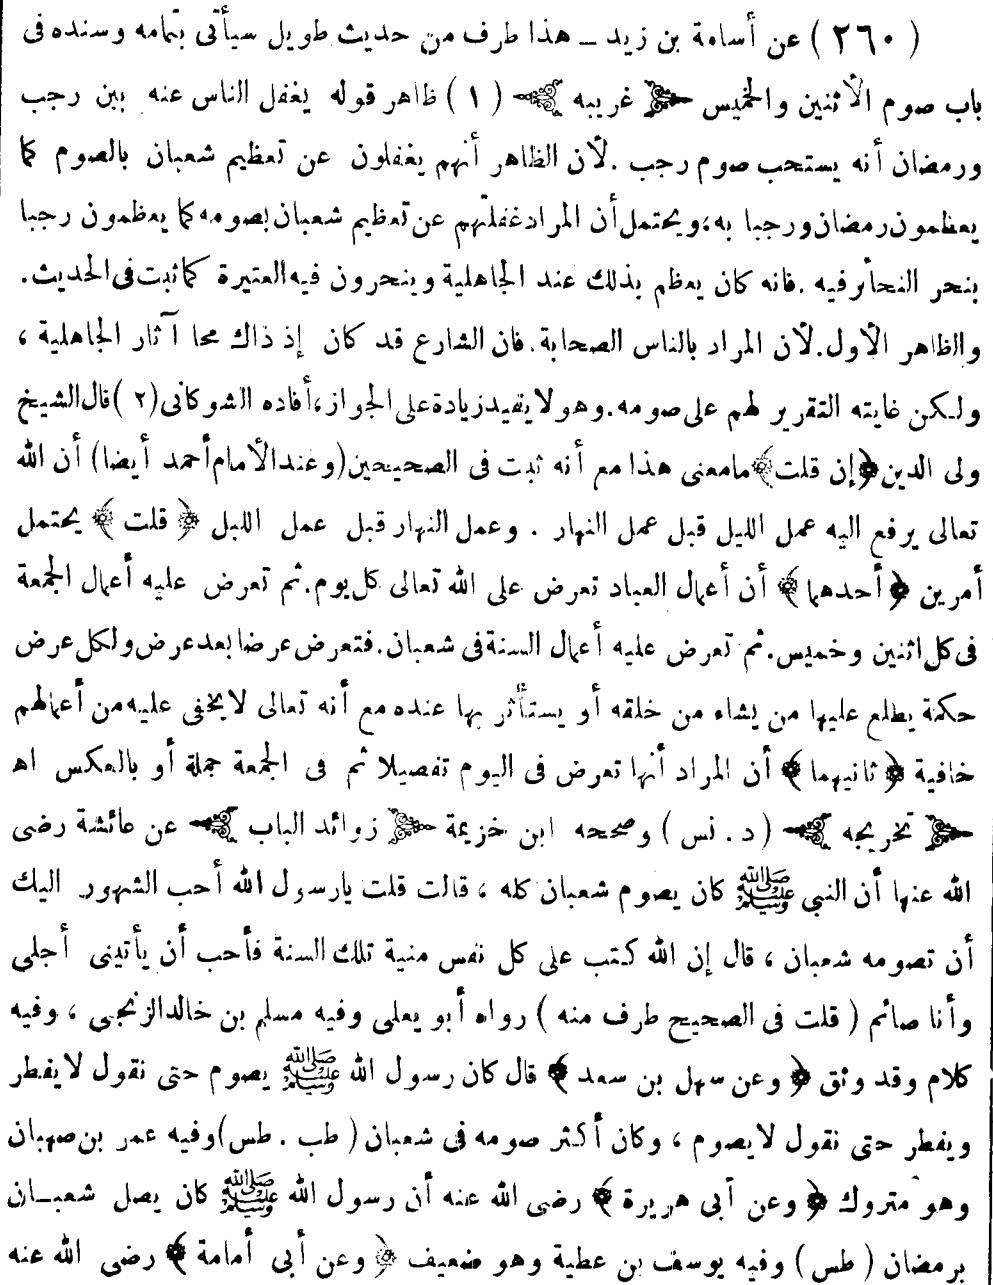 ( ٢٦٠ ) عن أسامة بن زيد ـ هذا طرف من حديث طويل سيأتى بتمامه وسنده فى
باب صوم الأثنين والخميس ﴿ غريبه ﴾ ( ١ ) ظاهر قوله يغفل الناس عنه بين رجب
ورمضان أنه يستحب صوم رجب . لأن الظاهر أنهم يغفلون عن تعظيم شعبان بالصوم كما
يعظمون رمضان ورجبا به، ويحتمل أن المراد غفلتهم عن تعظيم شعبان بصومه كما يعظمون رجبا
بنحر النحائر فيه . فانه كان يعظم بذلك عند الجاهلية وينحرون فيه العتيرة كما ثبت فى الحديث.
والظاهر الأول. لأن المراد بالناس الصحابة. فان الشارع قد كان إذ ذاك محا آثار الجاهلية ،
ولكن غايته التقرير لهم على صومه. وهو لا يفيد زيادة على الجواز، أفاده الشوكانى ( ٢ ) قال الشيخ
ولى الدين ﴿ إن قلت ﴾ ما معنى هذا مع أنه ثبت فى الصحيحين (وعند الأمام أحمد أيضا) أن الله
تعالى يرفع اليه عمل الليل قبل عمل النهار . وعمل النهار قبل عمل الليل ﴿ قلت ﴾ يحتمل
أمرين ﴿ أحدهما ﴾ أن أعمال العباد تعرض على الله تعالى كل يوم. ثم تعرض عليه أعمال الجمعة
فى كل اثنين وخميس. ثم تعرض عليه أعمال السنة فى شعبان. فتعرض عرضا بعد عرض ولكل عرض
حكمة يطلع عليها من يشاء من خلقه أو يستأثر بها عنده مع أنه تعالى لا يخفى عليه من أعمالهم
خافية ﴿ ثانيهما ﴾ أن المراد أنها تعرض فى اليوم تفصيلا ثم فى الجمعة جملة أو بالعكس اه
﴿ تخريجه ﴾ ( د . نس ) وصححه ابن خزيمة ﴿ زوائد الباب ﴾ عن عائشة رضى
الله عنها أن النبى ﷺ كان يصوم شعبان كله ، قالت قلت يا رسول الله أحب الشهور اليك
أن تصومه شعبان ، قال إن الله كتب على كل نفس منية تلك السنة فأحب أن يأتينى أجلى
وأنا صائم ( قلت فى الصحيح طرف منه ) رواه أبو يعلى وفيه مسلم بن خالد الزنجى ، وفيه
كلام وقد وثق ﴿ وعن سهل بن سعد ﴾ قال كان رسول الله ﷺ يصوم حتى نقول لا يفطر
ويفطر حتى نقول لا يصوم ، وكان أكثر صومه فى شعبان ( طب . طس) وفيه عمر بن صهبان
وهو متروك ﴿ وعن أبى هريرة ﴾ رضى الله عنه أن رسول الله ﷺ كان يصل شعبـان
برمضان ( طس ) وفيه يوسف بن عطية وهو ضعيف ﴿ وعن أبى أمامة ﴾ رضى الله عنه